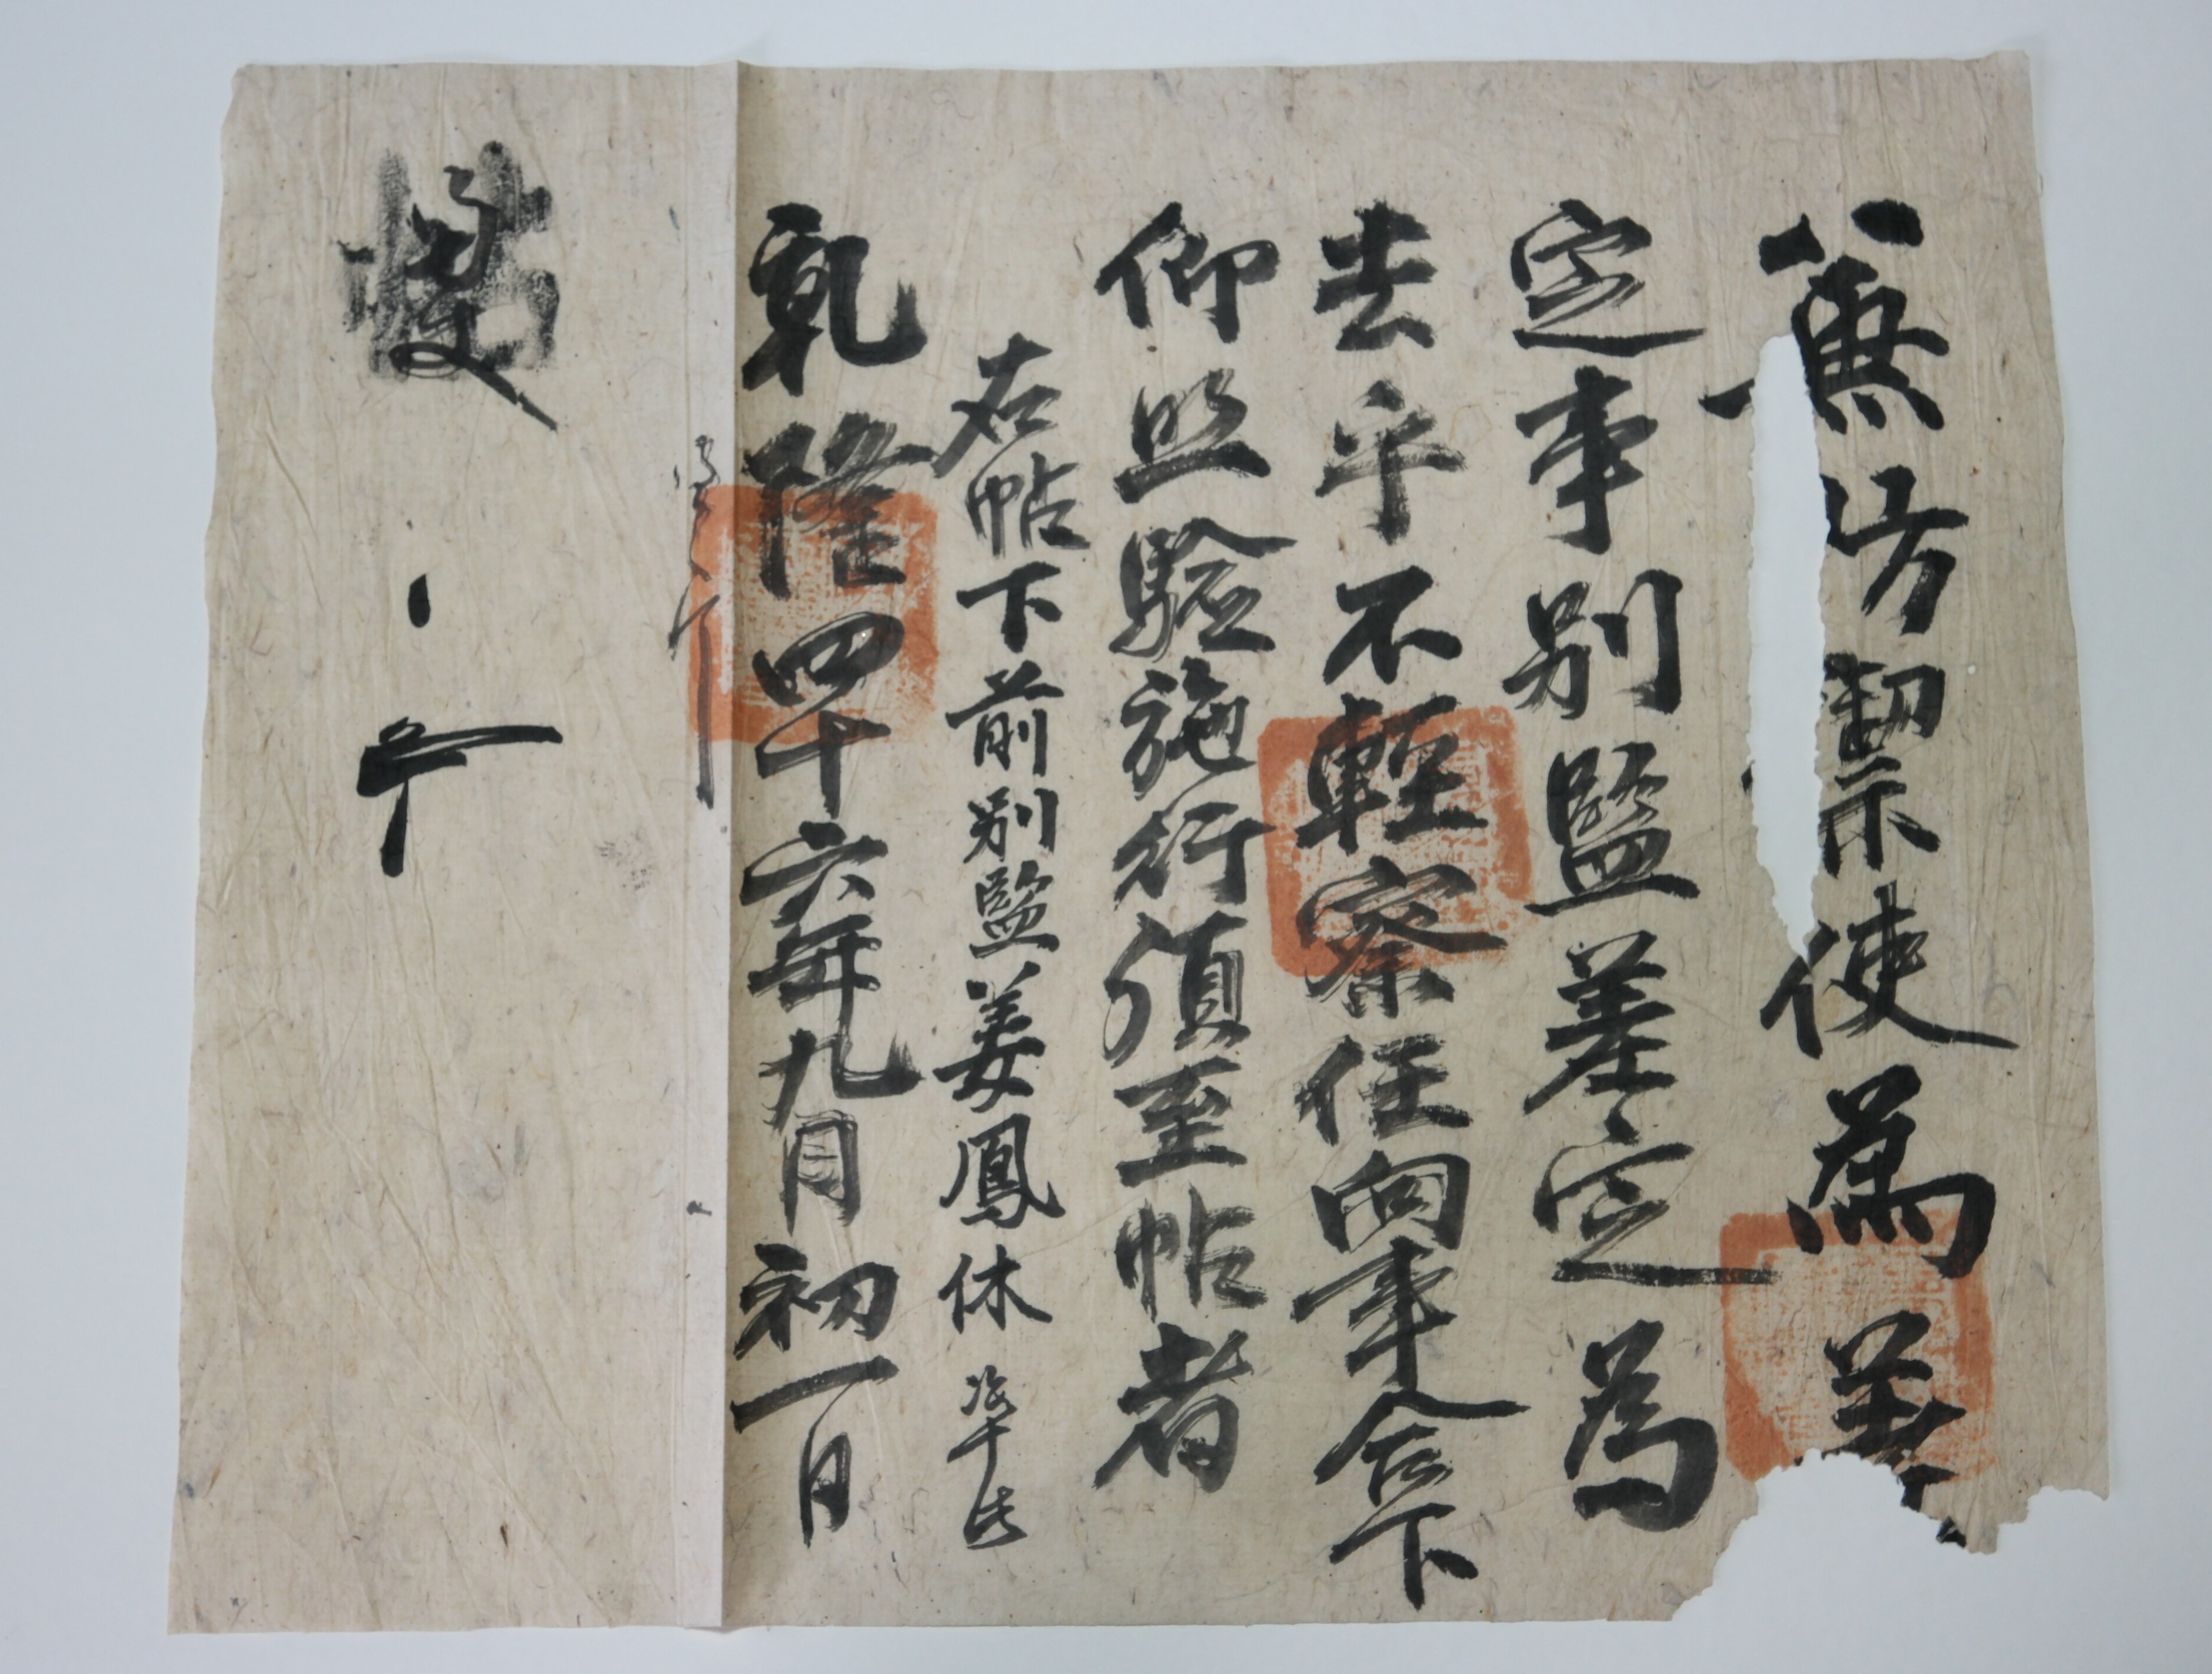 兼防禦使爲差
定事別監差定爲
去乎不輕察任向事合下
仰照驗施行須至帖者
右帖下前別監姜鳳休 準此
乾隆四十六年九月初一日
使